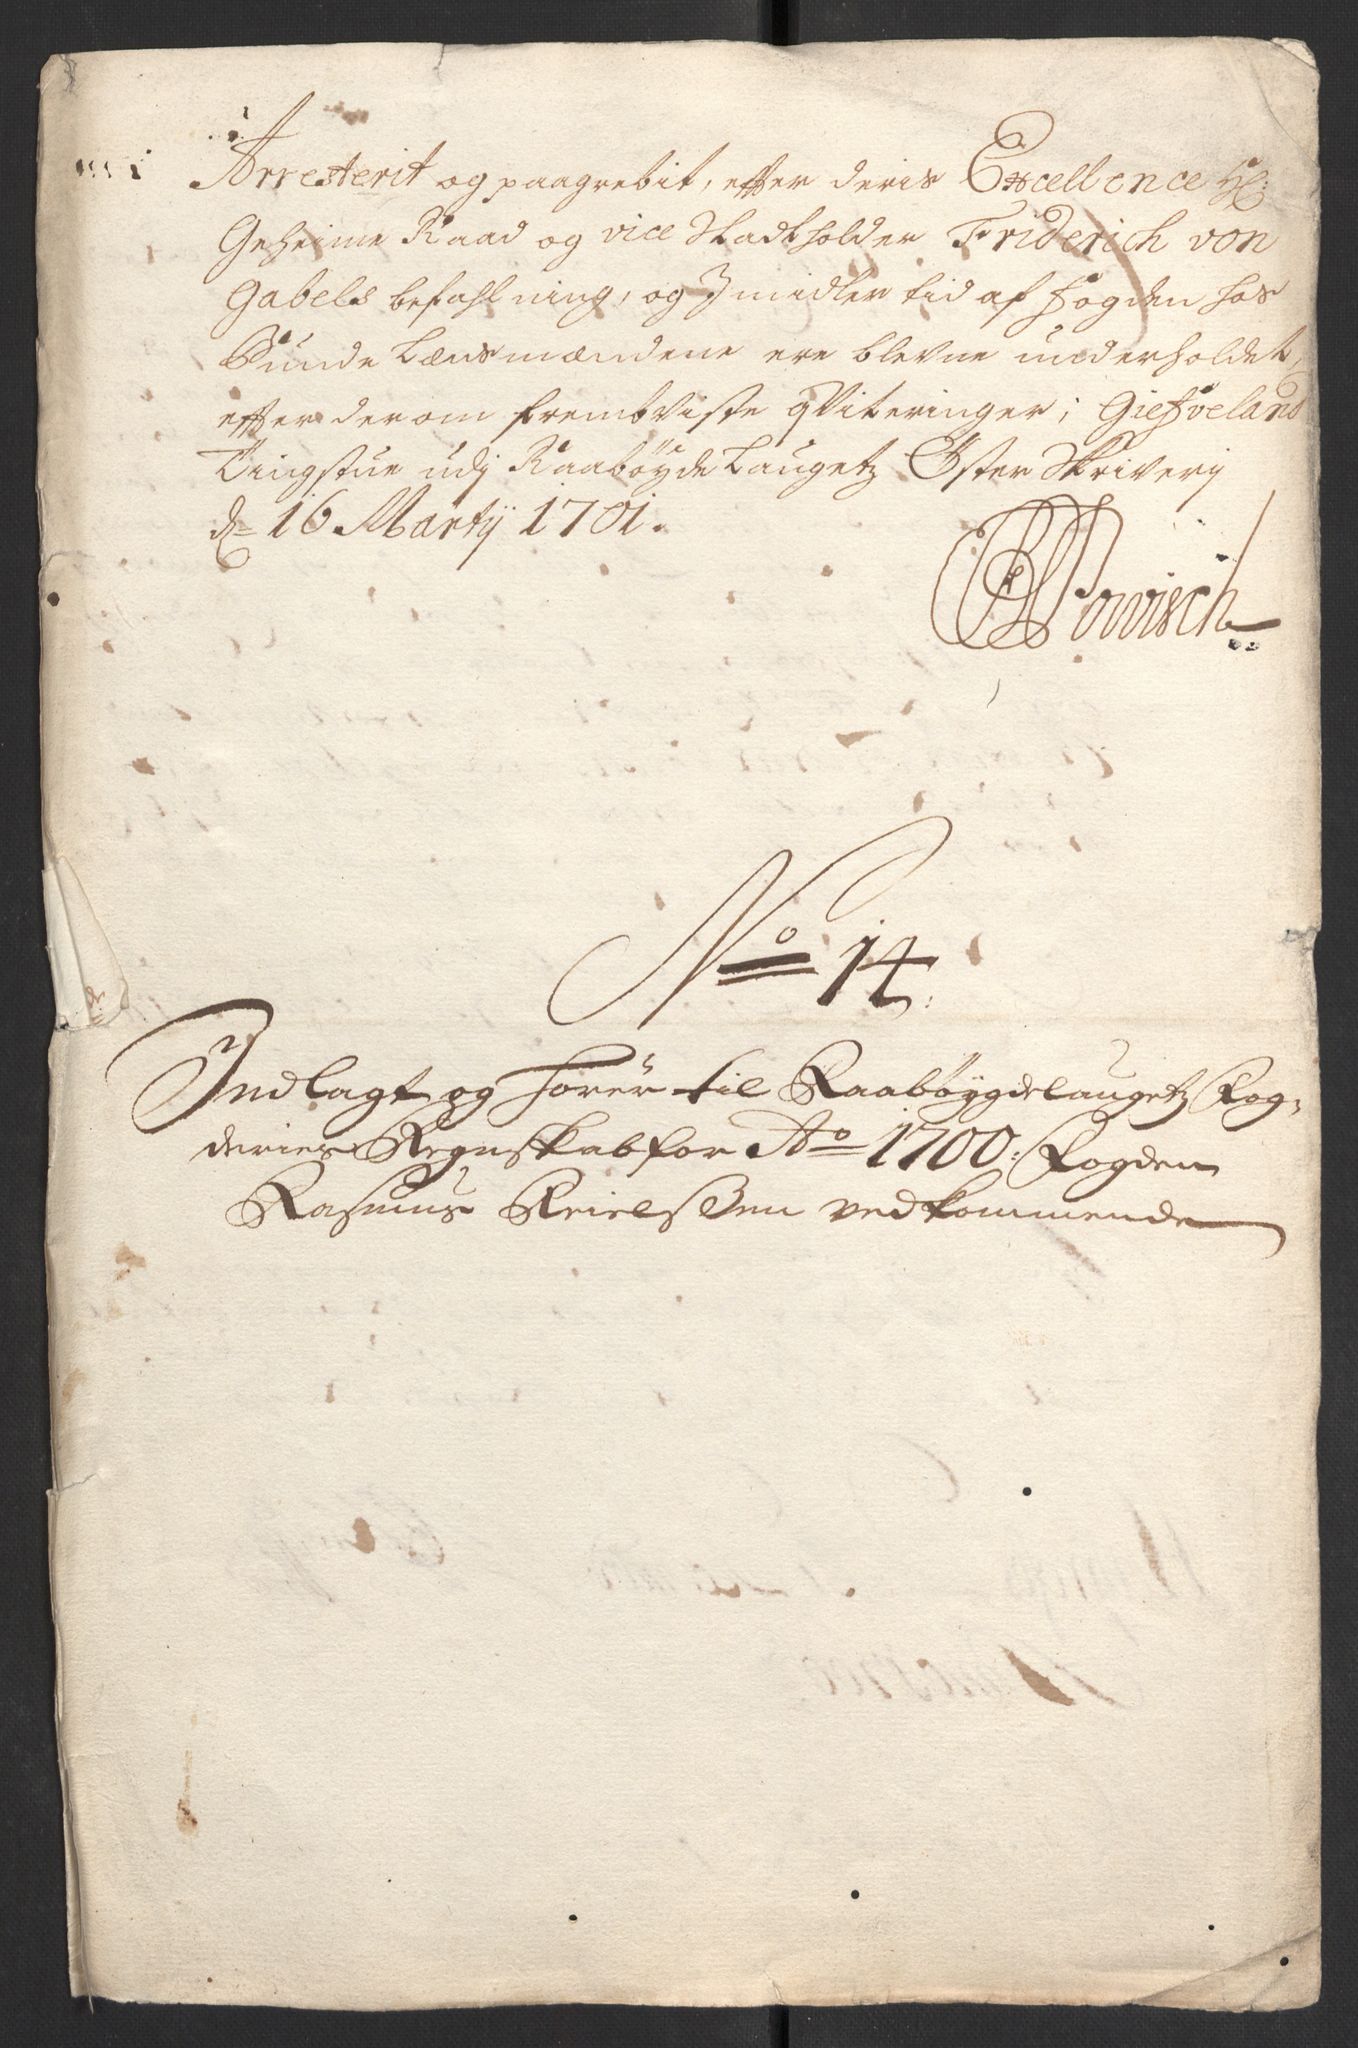 Arresterit og paagrebit, efter deris Excellence Hl:
Geheime Raad og vice Stadtholder Friderich von
Gabels befahlning, og Imidler tid af fogden hos
Bunde Lænsmændene ere blevne underholdet,
efter der om fremviste qviteringer; Giefveland
Tingstue udj Raabøyde Laugetz Øster Skriverij
dn 16 Martij 1701.
No 14:
Indlagt og hører til Raabøygdelaugetz Fog-
deries Regnskab for Ao 1700: Fogden
Rasmus Keielsßen vedkommende